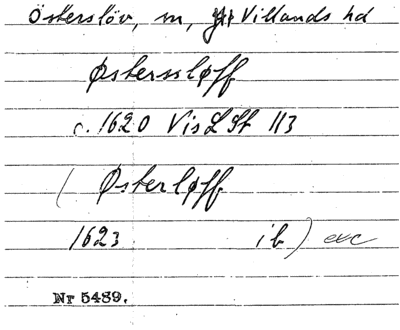 Österslöv, sn, Villands hd
Østersløff
c. 1620 VisLSt 113
( Østerløff
1623 ib )
Nr 5489.